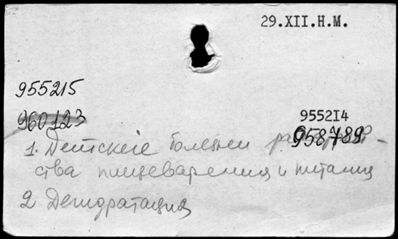 29.XII.Н.М.
955215
960123
955214
958789
1. Детские болезни расстрой-
ства пищеварения и питания
2. Дегидратация